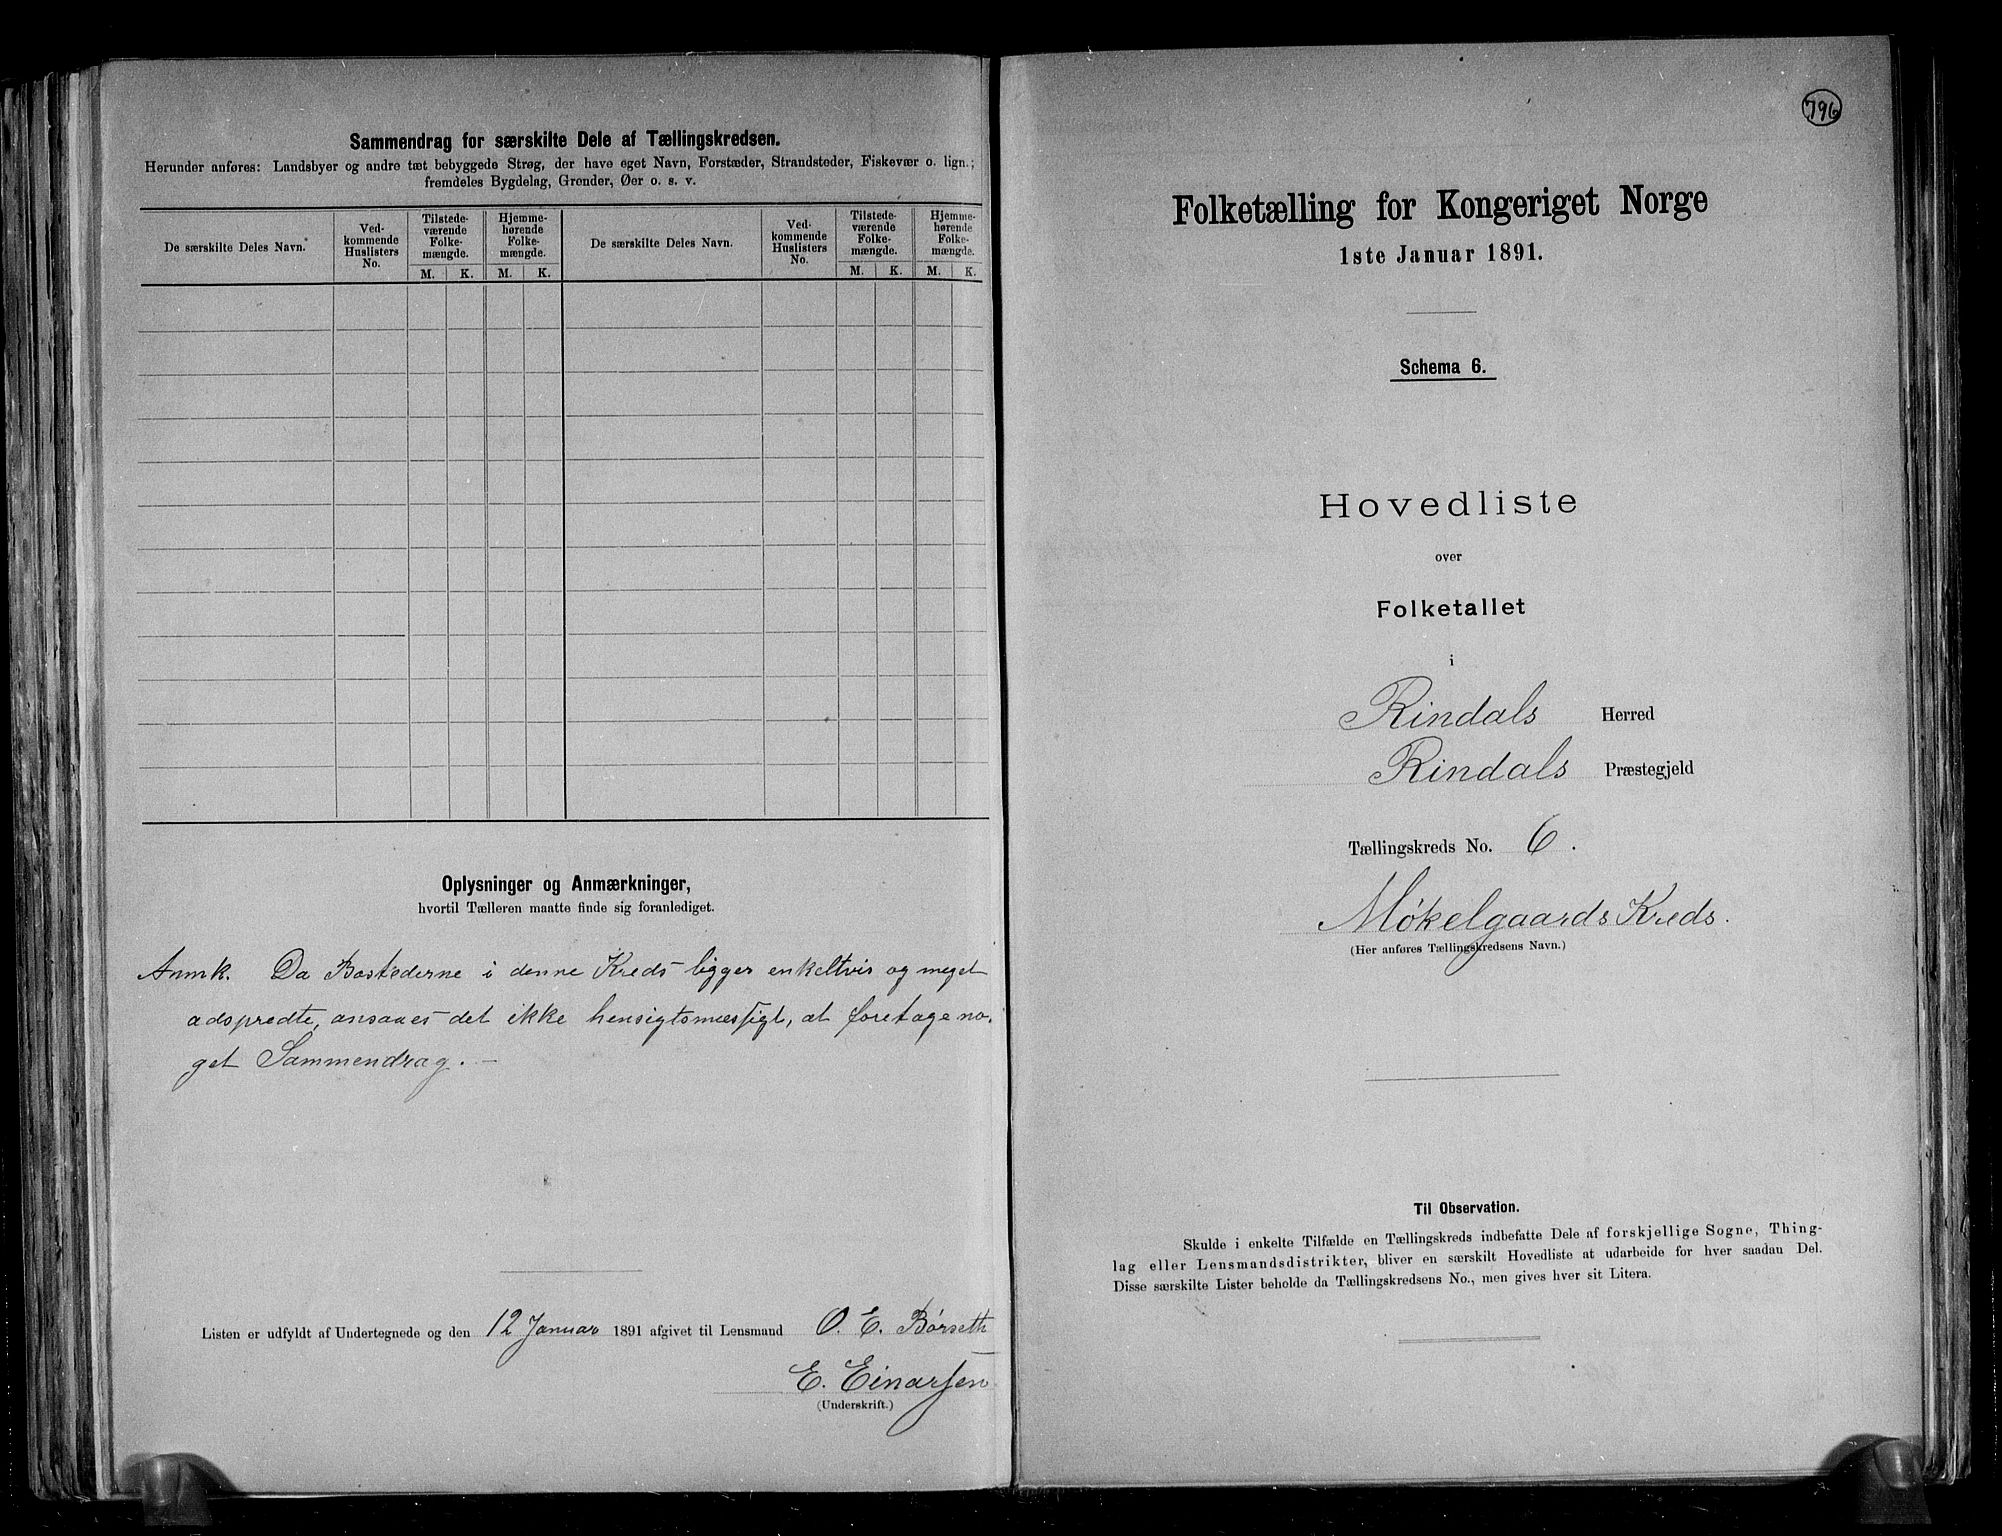 Sammendrag for særskilte Dele af Tællingskredsen.
Herunder anføres: Landsbyer og andre tæt bebyggede Strøg, der have eget Navn, Forstæder, Strandsteder, Fiskevær o. lign.;
fremdeles Bygdelag, Grender, Øer o. s. v.
De særskilte Deles Navn.
Ved-
kommende
Huslisters
No.
Tilstede-
værende
Folke-
mængde.
M. K.
Hjemme-
hørende
Folke-
mængde.
M. K.
De særskilte Deles Navn.
Ved-
kommende
Huslisters
No.
Tilstede-
værende
Folke-
mængde.
M. K.
Hjemme-
hørende
Folke-
mængde.
M. K.
Oplysninger og Anmærkninger,
hvortil Tælleren maatte finde sig foranlediget.
Anmk. Da Bostederne i denne Kreds ligger enkeltvis og meget
adspredte, ansaaes det ikke hensigtsmæssigt, at foretage no-
get Sammendrag. —
Listen er udfyldt af Undertegnede og den 12 Januar 1891 afgivet til Lensmand O. E. Børseth
E. Einarsen
(Underskrift.)
796
Folketælling for Kongeriget Norge
1ste Januar 1891.
Schema 6.
Hovedliste
over
Folketallet
i
Rindals Herred
Rindals Præstegjeld
Tællingskreds No. 6.
Møkelgaards Kreds.
(Her anføres Tællingskredsens Navn.)
Til Observation.
Skulde i enkelte Tilfælde en Tællingskreds indbefatte Dele af forskjellige Sogne, Thing-
lag eller Lensmandsdistrikter, bliver en særskilt Hovedliste at udarbeide for hver saadan Del.
Disse særskilte Lister beholde da Tællingskredsens No., men gives hver sit Litera.